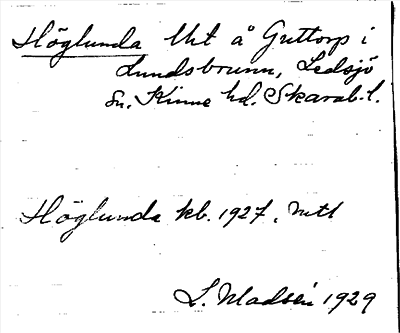 Höglunda lht å Guttorp i
Lundsbrunn, Ledsjö
sn. Kinne hd. Skarab. l.
Höglunda kb. 1927,
L. Madsén 1929